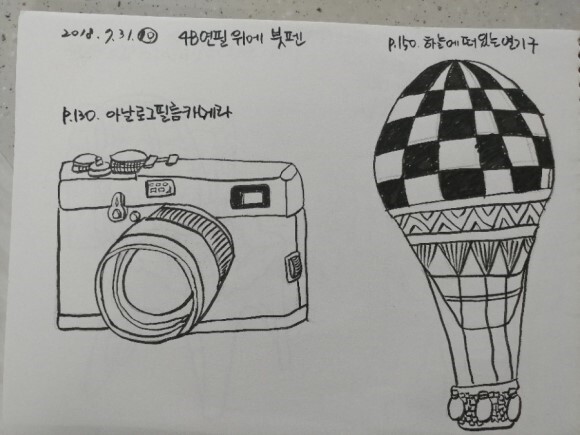 2018. 7. 31. 화 4B연필 위에 붓펜
p.150. 하늘에 떠있는 열기구
p.130. 아날로그필름카메라